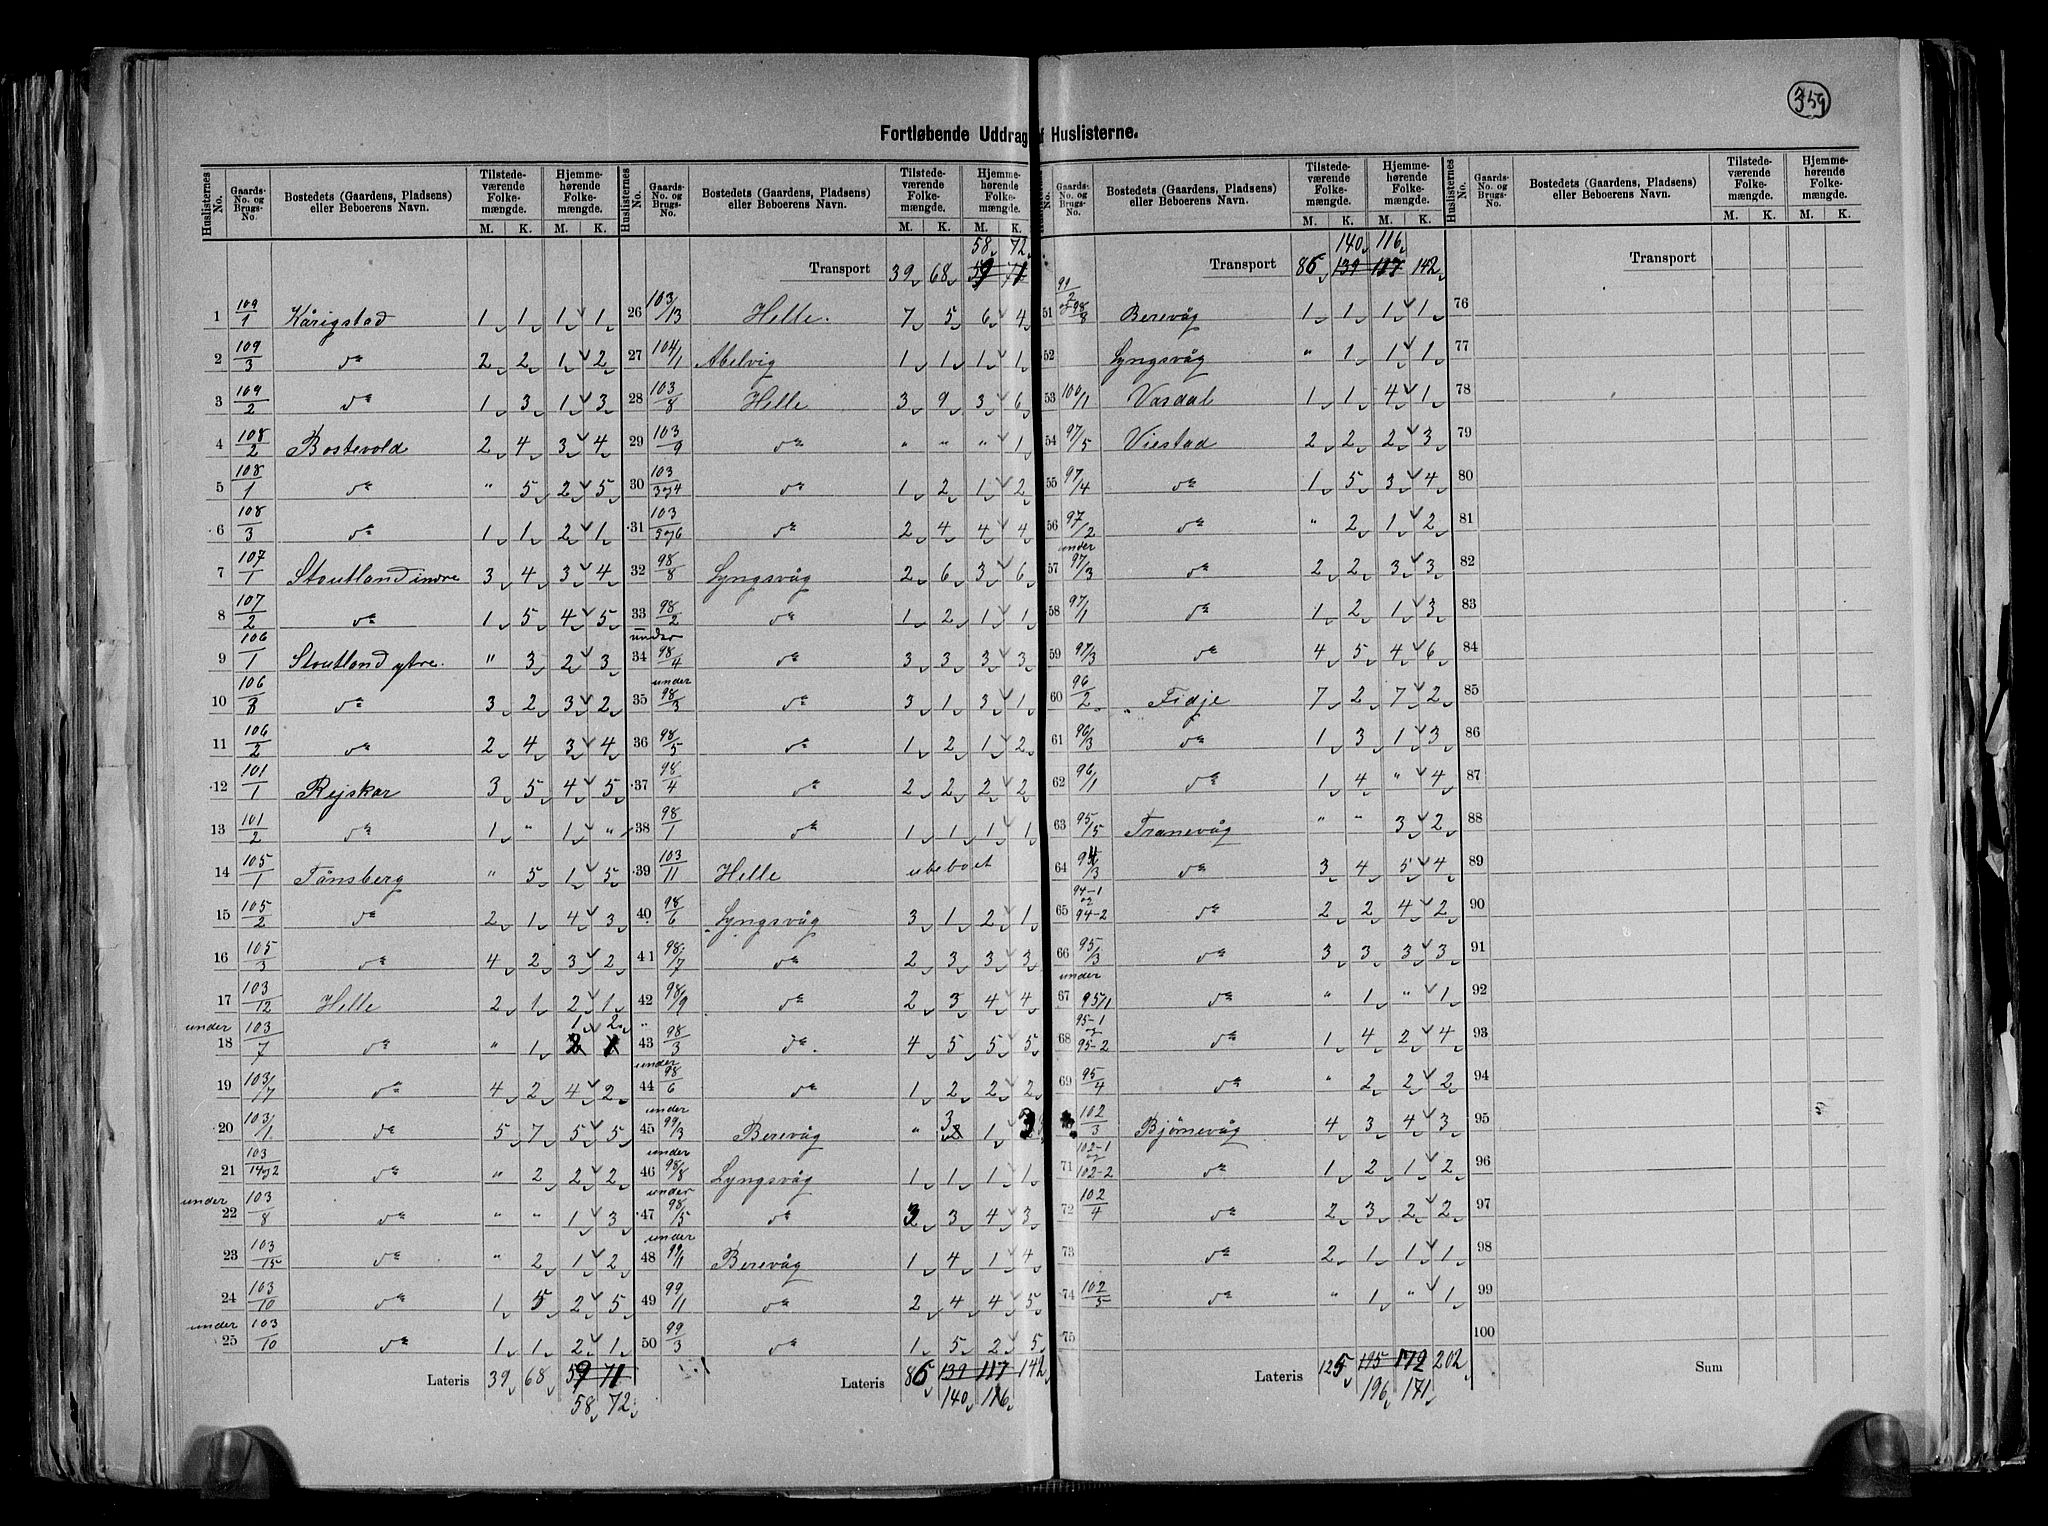 359
Fortløbende Uddrag af Huslisterne.
Huslisternes No. | Gaards-No. og Brugs-No. | Bostedets (Gaardens, Pladsens) eller Beboerens Navn. | Tilstedeværende Folkemængde. M. K. | Hjemmehørende Folkemængde. M. K.
1 109/1 Kårigstad 1 1 1 1
2 109/3 do 2 2 1 2
3 109/2 do 1 3 1 3
4 108/2 Bostevold 2 4 3 4
5 108/1 do " 5 2 5
6 108/3 do 1 1 2 1
7 107/1 Stoutland indre 3 4 3 4
8 107/2 do 1 5 4 5
9 106/1 Stoutland ytre. " 3 2 3
10 106/3 do 3 2 3 2
11 106/2 do 2 4 3 4
12 101/1 Rejskar 3 5 4 5
13 101/2 do 1 " 1 "
14 105/1 Tånsberg " 5 1 5
15 105/2 do 2 1 4 3
16 105/3 do 4 2 3 2
17 103/12 Helle 2 1 2 1
under 18 103/7 do " 1 1 2
19 103/7 do 4 2 4 2
20 103/1 do 5 7 5 5
21 103/14og2 do " 2 2 2
under 22 103/8 do " " 1 3
23 103/15 do " 2 1 2
24 103/10 do 1 5 2 5
under 25 103/10 do 1 1 2 1
Lateris 39 68 59 71
58 72
58 72
Transport 39 68 59 71
26 103/13 Helle. 7 5 6 4
27 104/1 Abelvig 1 1 1 1
28 103/8 Helle 3 9 3 6
29 103/9 do " " " 1
30 103/3og4 do 1 2 1 2
31 103/5og6 do 2 4 4 4
32 98/8 Lyngsvåg 2 6 3 6
33 98/2 do 1 2 1 1
under 34 98/4 do 3 3 3 3
under 35 98/3 do 3 1 3 1
36 98/5 do 1 2 1 2
37 98/4 do 2 2 2 2
38 98/1 do 1 1 1 1
39 103/11 Helle ubeboet
40 98/6 Lyngsvåg 3 1 2 1
41 98/7 do 2 3 3 3
42 98/9 do 2 3 4 4
" 43 98/3 do. 4 5 5 5
under 44 98/6 do 1 2 2 2
under 45 99/3 Berevåg " 3 1 3
under 46 98/8 Lyngsvåg 1 1 1 1
under 47 98/5 do 3 3 4 3
under 48 99/1 Berevåg 1 4 1 4
49 99/1 do 2 4 4 5
50 99/3 do 1 5 2 5
Lateris 86 139 117 142
140 116
140 116
Transport 86 139 117 142
51 99/2 og 98/8 Berevåg 1 1 1 1
52 Lyngsvåg " 1 1 1
53 100/1 Vasdal 1 1 4 1
54 97/5 Viestad 2 2 2 3
55 97/4 do 1 5 3 4
56 97/2 do " 2 1 2
under 57 97/3 do 2 2 3 3
58 97/1 do 1 2 1 3
59 97/3 do 4 5 4 6
60 96/2 Fidje 7 2 7 2
61 96/3 do 1 3 1 3
62 96/1 do 1 4 " 4
63 95/5 Tranevåg " " 3 2
64 94/3 do 3 4 5 4
65 94-1 og 94-2 do 2 2 4 2
66 95/3 do 3 3 3 3
under 67 95/1 do " 1 " 1
68 95-1 og 95-2 do 1 4 2 4
69 95/4 do " 2 2 2
102/3 Bjørnevåg 4 3 4 3
71 102-1 og 102-2 do 1 2 1 2
72 102/4 do 2 3 2 2
73 do 2 1 1 1
74 102/5 do " 1 " 1
75
Lateris 125 195 172 202
196 171
Transport
76
77
78
79
80
81
82
83
84
85
86
87
88
89
90
91
92
93
94
95
96
97
98
99
100
Sum